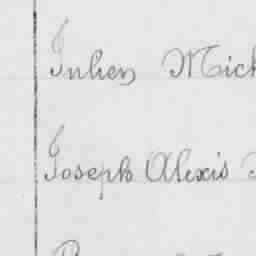 Julien Mich
Joseph Alexis